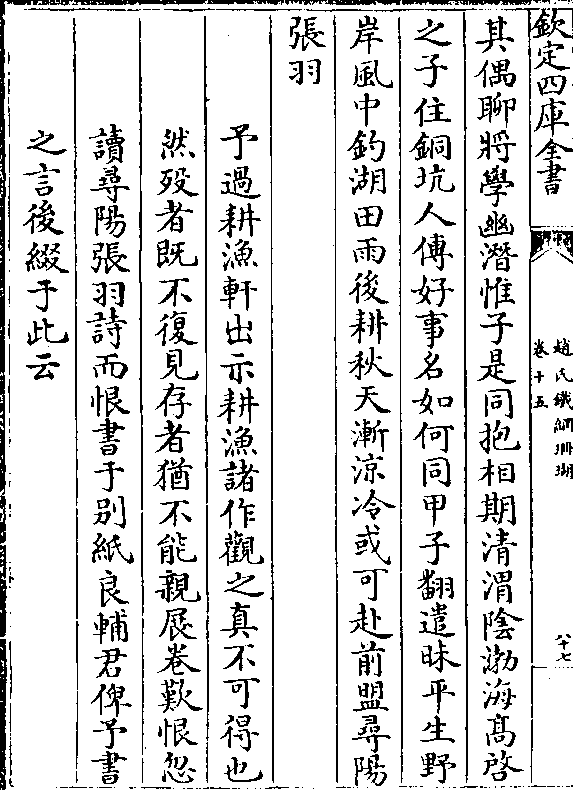 欽定四庫全書
趙氏鐵網珊瑚
卷十五
八十七
其偶聊將學幽潛惟子是同抱相期清渭陰渤海髙啓
之子住銅坑人傳好事名如何同甲子翻遣昧平生野
岸風中釣湖田雨後耕秋天漸涼冷或可赴前盟尋陽
張羽
予過耕漁軒出示耕漁諸作觀之真不可得也
然殁者既不復見存者猶不能親展卷歎恨忽
讀尋陽張羽詩而恨書于别紙良輔君俾予書
之言後綴于此云